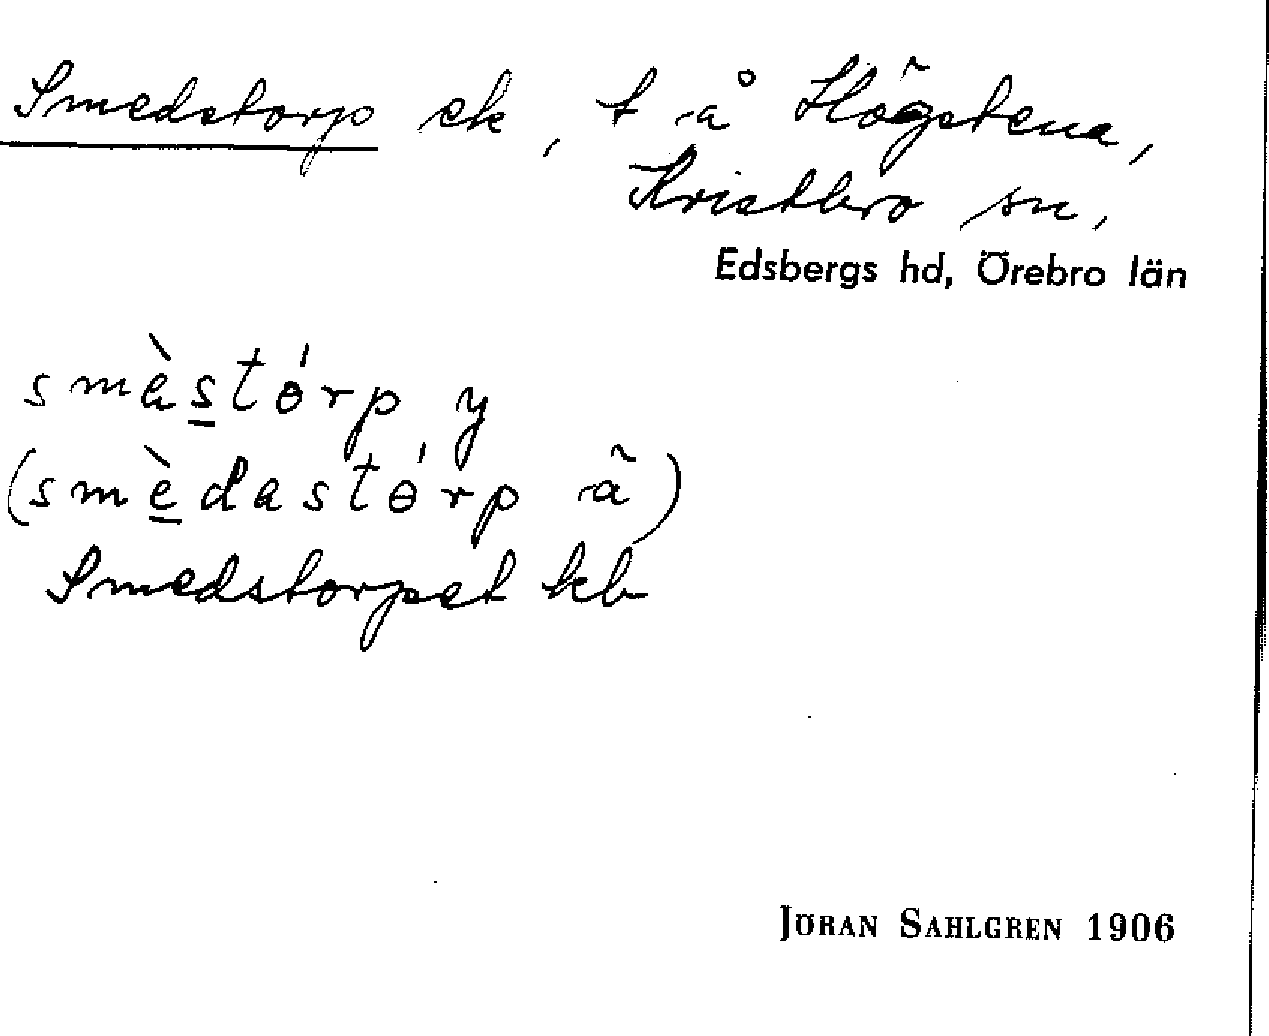 Smedstorp ek, t å Högstena,
Kristbro sn,
Edsbergs hd, Örebro län
smèstɵ́rp y
(smèdastɵ́rp ä)
Smedstorpet kb
JÖRAN SAHLGREN 1906